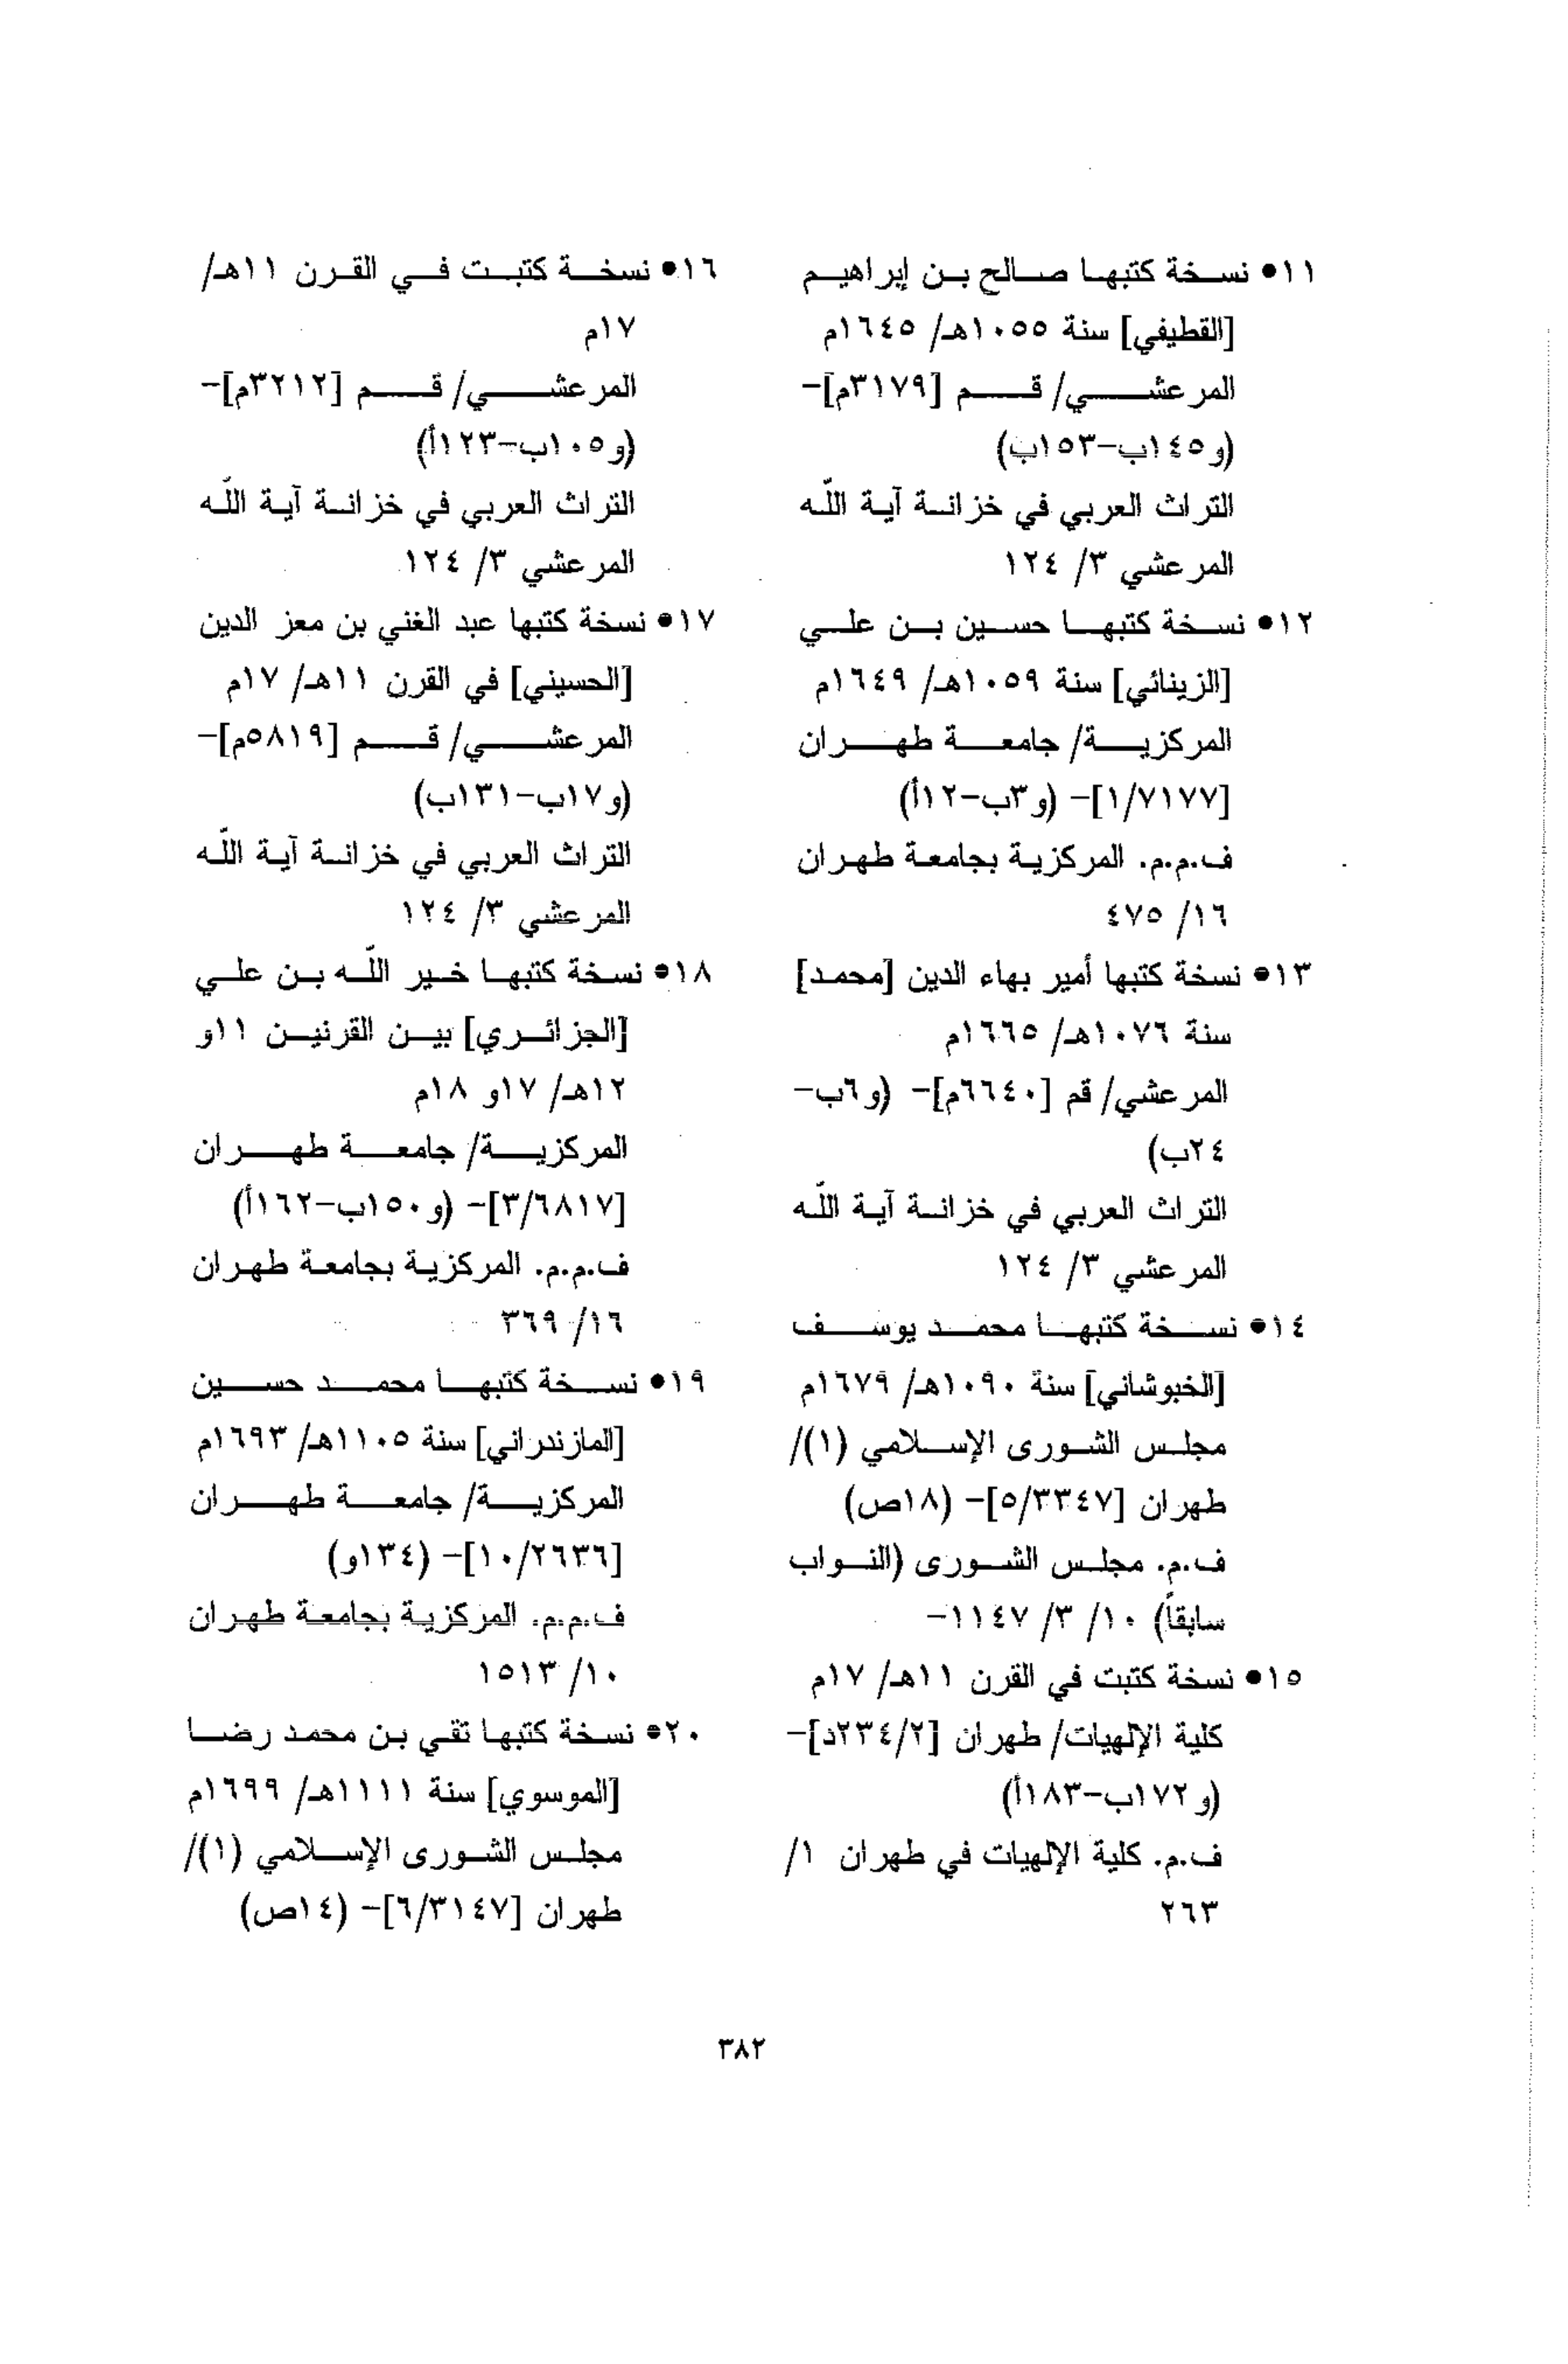 ١١● نسخة كتبها صالح بن إبراهيم
[القطيفي] سنة ١٠٥٥هـ/ ١٦٤٥م
المرعشي/ قم [٣١٧٩م]-
(و١٤٥ب-١٥٣ب)
التراث العربي في خزانة آية اللّه
المرعشي ٣/ ١٢٤
١٢● نسخة كتبها حسين بن علي
[الزينائي] سنة ١٠٥٩هـ/ ١٦٤٩م
المركزية/ جامعة طهران
[١/٧١٧٧]- (و٣ب-١٢أ)
ف.م.م. المركزية بجامعة طهران
١٦/ ٤٧٥
١٣● نسخة كتبها أمير بهاء الدين [محمد]
سنة ١٠٧٦هـ/ ١٦٦٥م
المرعشي/ قم [٦٦٤٠م]- (و٦ب-
٢٤ب)
التراث العربي في خزانة آية اللّه
المرعشي ٣/ ١٢٤
١٤● نسخة كتبها محمد يوسف
[الخبوشاني] سنة ١٠٩٠هـ/ ١٦٧٩م
مجلس الشورى الإسلامي (١)/
طهران [٥/٣٣٤٧]- (١٨ص)
ف.م. مجلس الشورى (النواب
سابقاً) ١٠/ ٣/ ١١٤٧-
١٥● نسخة كتبت في القرن ١١هـ/ ١٧م
كلية الإلهيات/ طهران [٢٣٤/٢د]-
(و١٧٢ب-١٨٣أ)
ف.م. كلية الإلهيات في طهران ١/
٢٦٣
١٦● نسخة كتبت في القرن ١١هـ/
١٧م
المرعشي/ قم [٣٢١٢م]-
(و١٠٥ب-١٢٣أ)
التراث العربي في خزانة آية اللّه
المرعشي ٣/ ١٢٤
١٧● نسخة كتبها عبد الغني بن معز الدين
[الحسيني] في القرن ١١هـ/ ١٧م
المرعشي/ قم [٥٨١٩م]-
(و١٧ب-١٣١ب)
التراث العربي في خزانة آية اللّه
المرعشي ٣/ ١٢٤
١٨● نسخة كتبها خير اللّه بن علي
[الجزائري] بين القرنين ١١و
١٢هـ/ ١٧و ١٨م
المركزية/ جامعة طهران
[٣/٦٨١٧]- (و١٥٠ب-١٦٢أ)
ف.م.م. المركزية بجامعة طهران
١٦/ ٣٦٩
١٩● نسخة كتبها محمد حسين
[المازندراني] سنة ١١٠٥هـ/ ١٦٩٣م
المركزية/ جامعة طهران
[١٠/٢٦٣٦]- (١٣٤و)
ف.م.م. المركزية بجامعة طهران
١٠/ ١٥١٣
٢٠● نسخة كتبها تقي بن محمد رضا
[الموسوي] سنة ١١١١هـ/ ١٦٩٩م
مجلس الشورى الإسلامي (١)/
طهران [٦/٣١٤٧]- (١٤ص)
٣٨٢